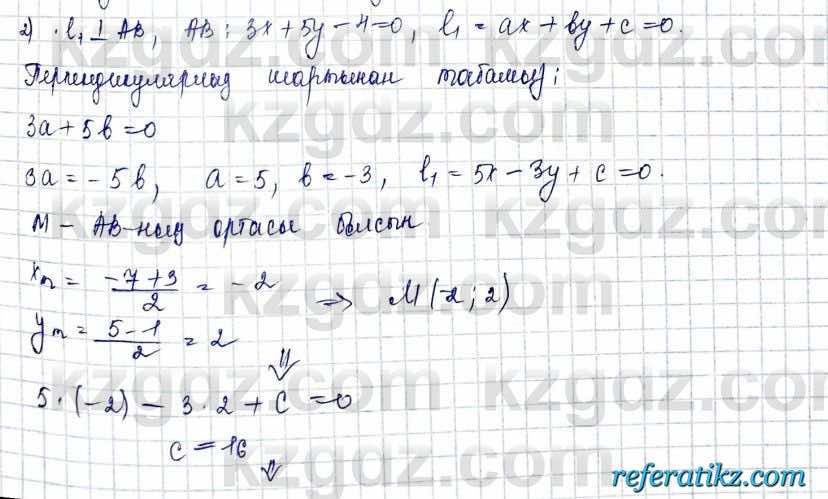 2) · l₁ ⊥ AB, AB: 3x + 5y − 4 = 0, l₁ = ax + by + c = 0.
Перпендикулярлық шартынан табамыз;
3a + 5b = 0
3a = − 5b, a = 5, b = −3, l₁ = 5x − 3y + c = 0.
M − AB-ның ортасы болсын
xₘ = (−7 + 3)/2 = −2 ⇒ M(−2; 2)
yₘ = (5 − 1)/2 = 2
⇓
5 · (−2) − 3 · 2 + C = 0
c = 16
⇓
kzgdz.com
referatikz.com